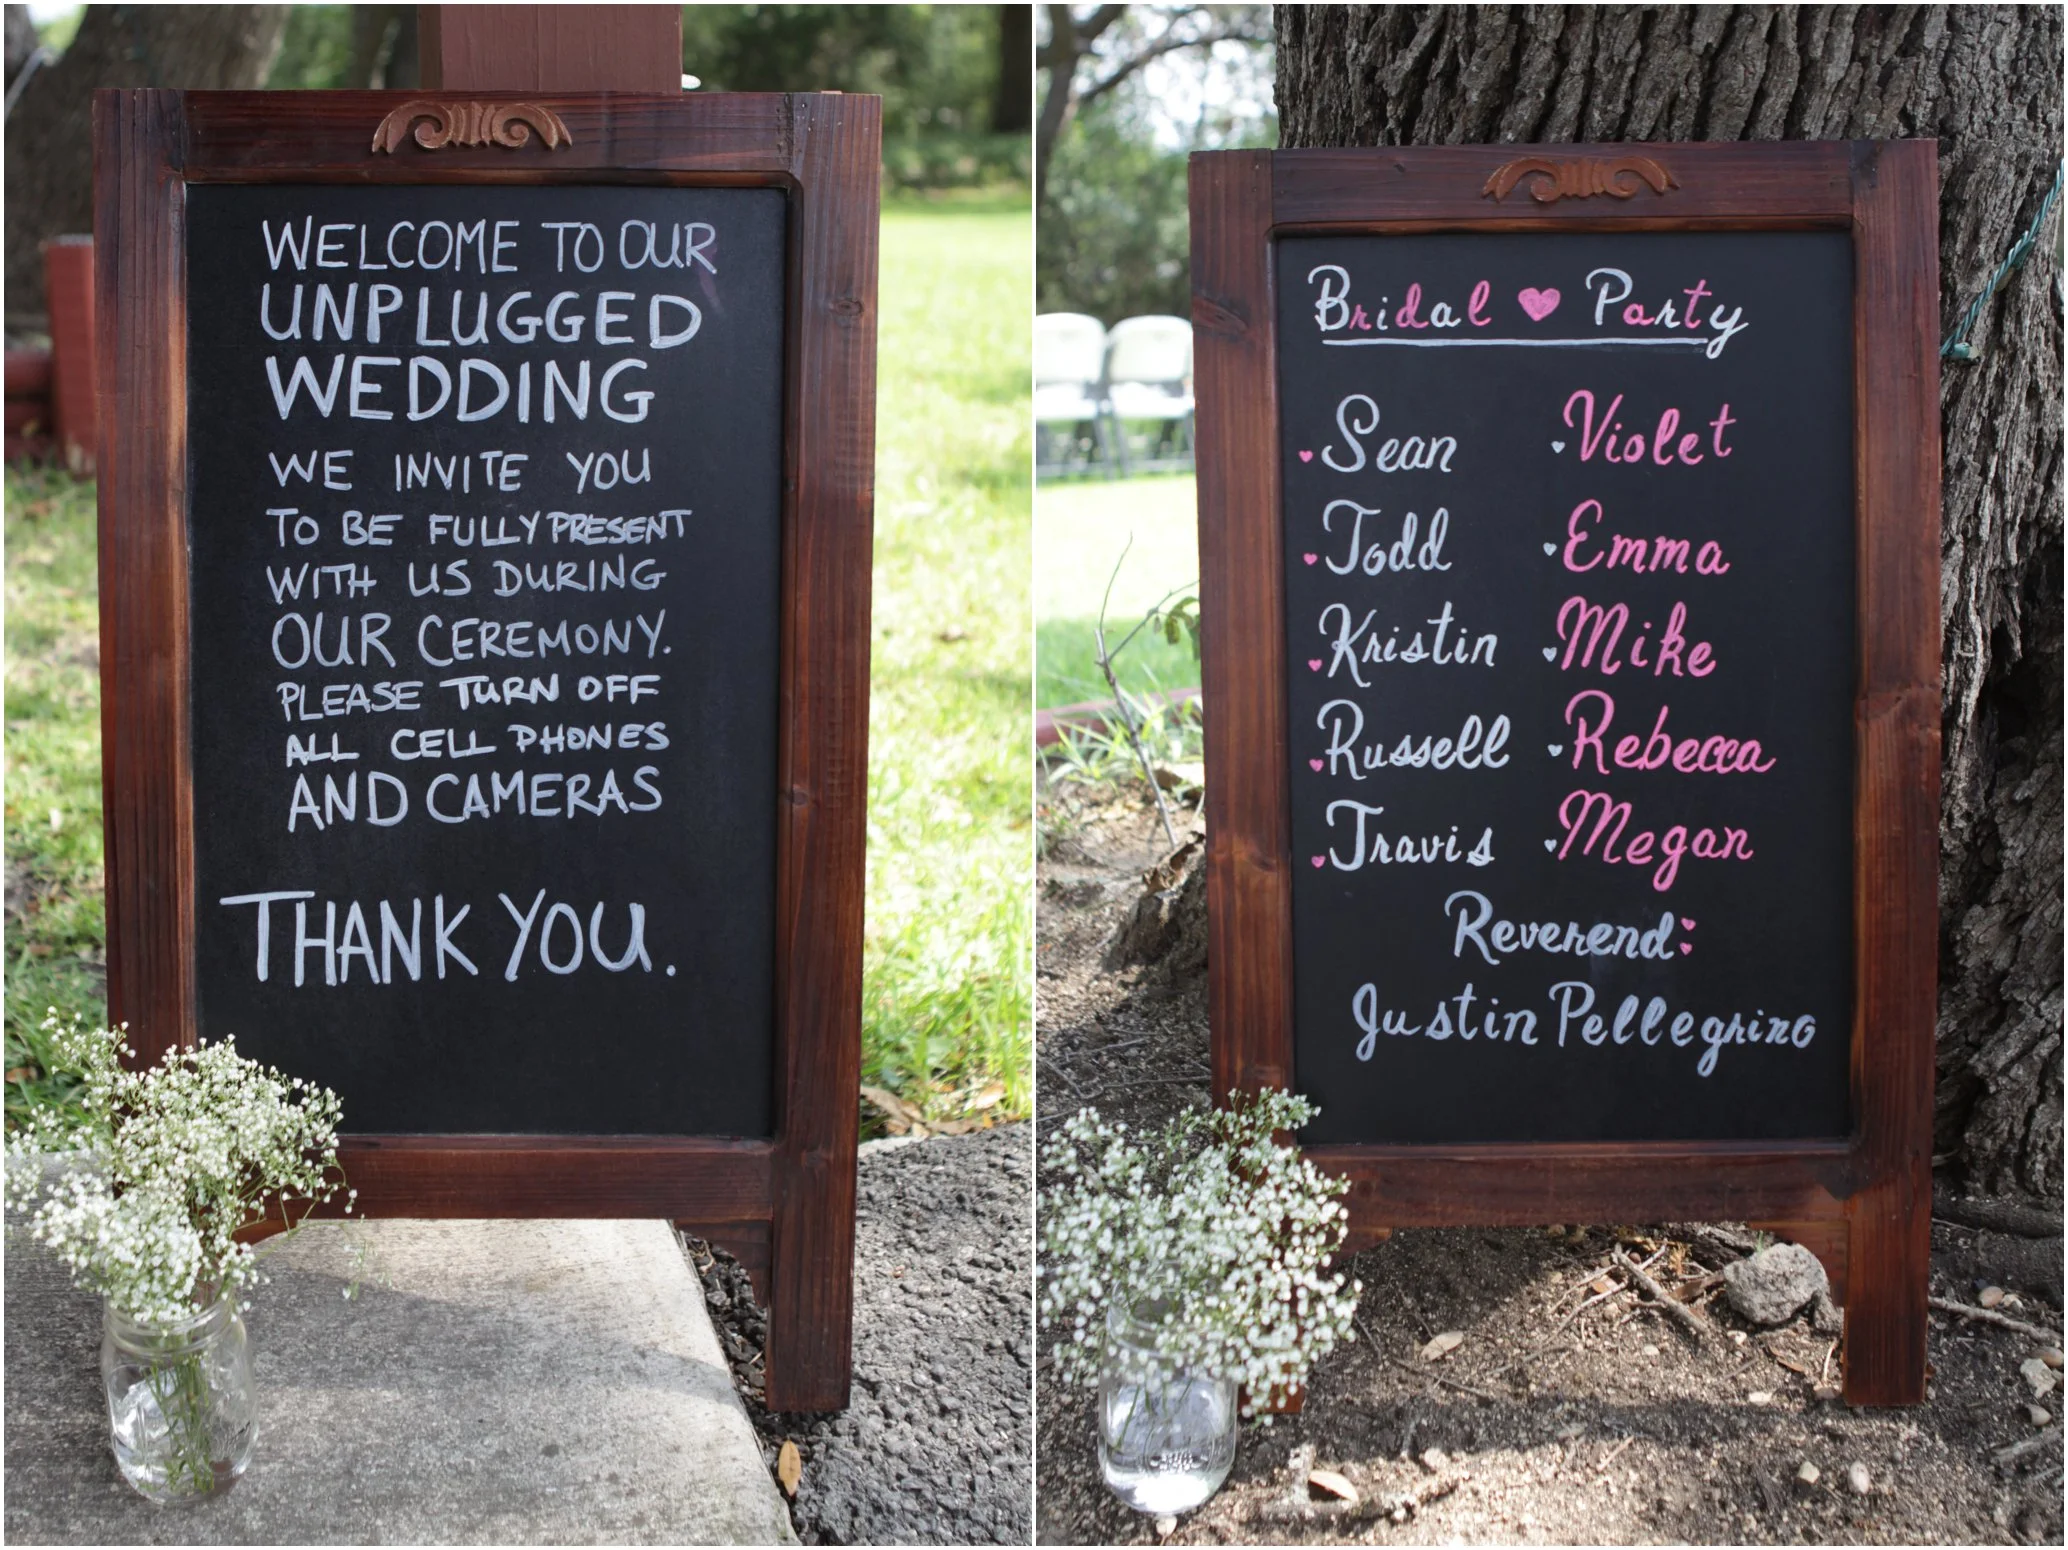 WELCOME TO OUR
UNPLUGGED
WEDDING
WE INVITE YOU
TO BE FULLY PRESENT
WITH US DURING
OUR CEREMONY.
PLEASE TURN OFF
ALL CELL PHONES
AND CAMERAS
THANK YOU.
Bridal ♥ Party
Sean Violet
Todd Emma
Kristin Mike
Russell Rebecca
Travis Megan
Reverend:
Justin Pellegrino